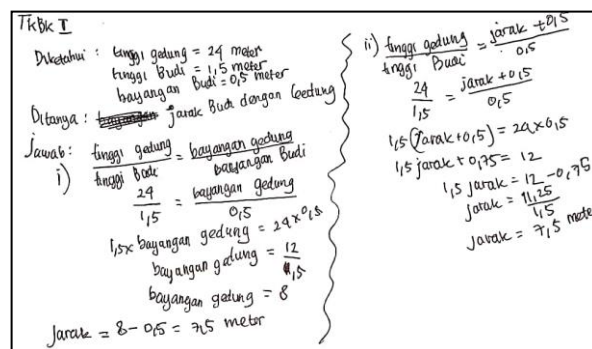 TKBK I
Diketahui : tinggi gedung = 24 meter
tinggi Budi = 1,5 meter
bayangan Budi = 0,5 meter
Ditanya : jarak Budi dengan Gedung
Jawab :
i) tinggi gedung / tinggi Budi = bayangan gedung / bayangan Budi
24 / 1,5 = bayangan gedung / 0,5
1,5 x bayangan gedung = 24 x 0,5
bayangan gedung = 12 / 1,5
bayangan gedung = 8
Jarak = 8 - 0,5 = 7,5 meter
ii) tinggi gedung / tinggi Budi = jarak + 0,5 / 0,5
24 / 1,5 = jarak + 0,5 / 0,5
1,5 (jarak + 0,5) = 24 x 0,5
1,5 jarak + 0,75 = 12
1,5 jarak = 12 - 0,75
jarak = 11,25 / 1,5
jarak = 7,5 meter